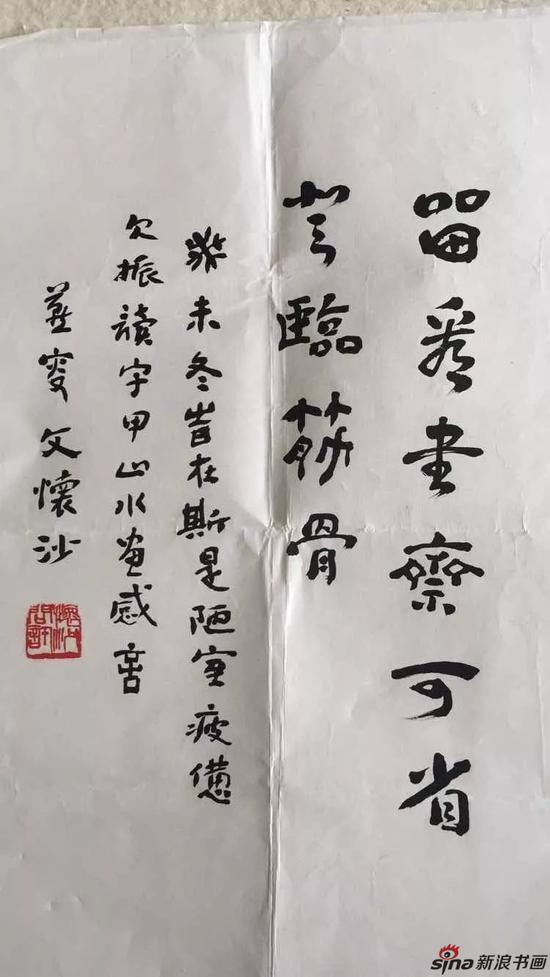 留看書齋可省
登臨筋骨
癸未冬時在斯是陋室疲憊
欠振讀宇甲山水畫感書
燕叟文懷沙
sina新浪书画